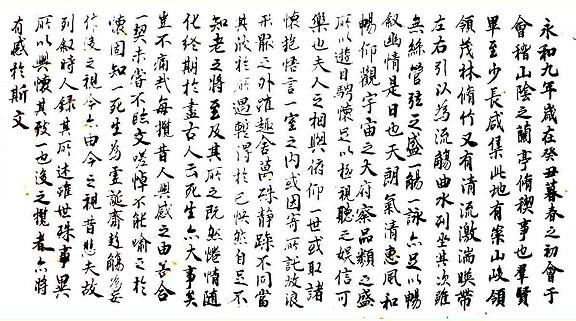 永和九年歲在癸丑暮春之初會于
會稽山陰之蘭亭脩稧事也羣賢
畢至少長咸集此地有崇山峻領
領茂林脩竹又有清流激湍暎帶
左右引以為流觴曲水列坐其次雖
無絲管弦之盛一觴一詠亦足以暢
叙幽情是日也天朗氣清惠風和
暢仰觀宇宙之大俯察品類之盛
所以遊目騁懷足以極視聽之娛信可
樂也夫人之相與俯仰一世或取諸
懷抱悟言一室之內或因寄所託放浪
形骸之外雖趣舍萬殊靜躁不同當
其欣於所遇暫得於己怏然自足不
知老之將至及其所之既然惓情隨
化終期於盡古人云死生亦大矣
豈不痛哉每攬昔人興感之由若合
一契未嘗不臨文嗟悼不能喻之於
懷固知一死生為虛誕齊彭殤為妄
作後之視今亦由今之視昔悲夫故
列叙時人錄其所述雖世殊事異
所以興懷其致一也後之攬者亦將
有感於斯文